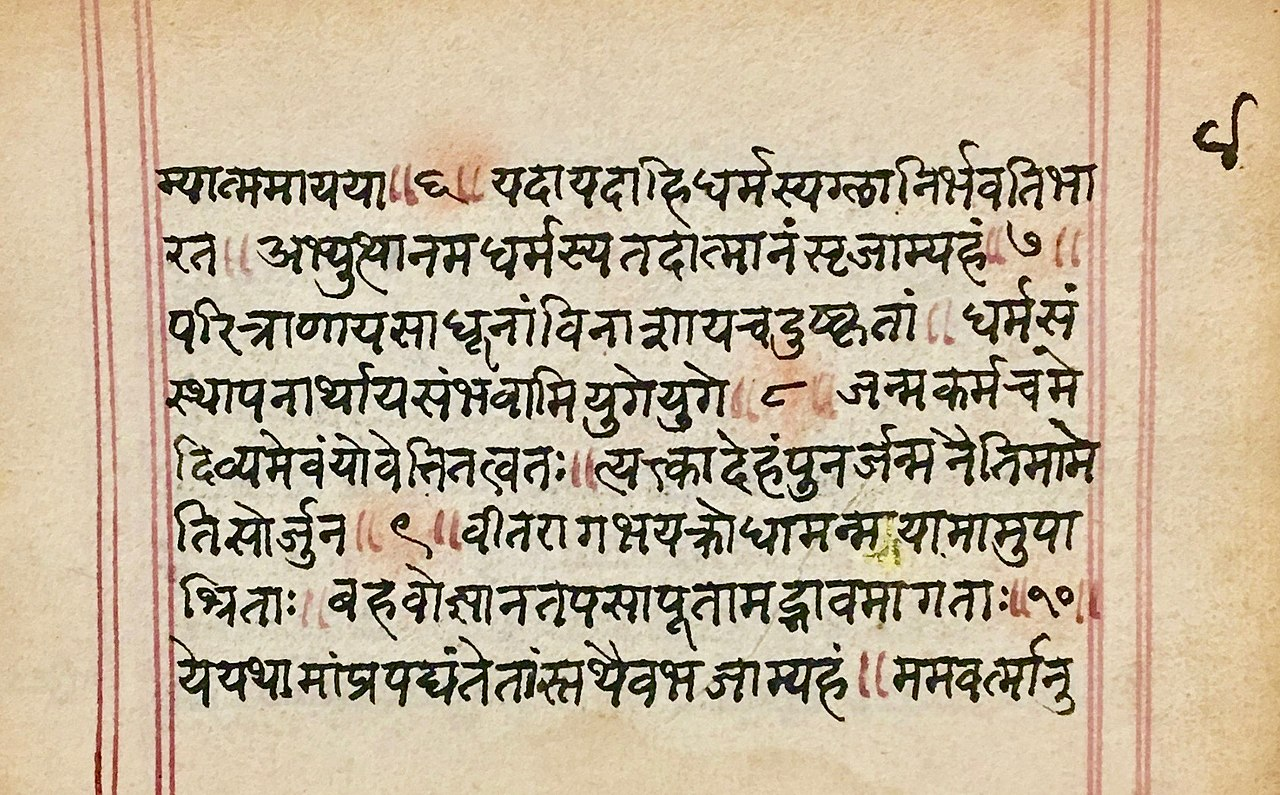 ४
म्यात्ममायया॥६॥ यदायदाहिधर्मस्यग्लानिर्भवतिभा
रत॥ अभ्युत्थानमधर्मस्यतदात्मानंसृजाम्यहं॥७॥
परित्राणायसाधूनांविनाशायचदुष्कृतां॥ धर्मसं
स्थापनार्थायसंभवामियुगेयुगे॥८॥ जन्मकर्मचमे
दिव्यमेवंयोवेत्तितत्वतः॥त्यक्त्कादेहंपुनर्जन्मनैतिमामे
तिसोर्जुन॥९॥वीतरागभयक्रोधामन्मयामामुपा
श्रिताः॥ बहवोज्ञानतपसापूतामद्भावमागताः॥१०॥
येयथामांप्रपद्यंतेतांस्तथैवभजाम्यहं॥ममवर्त्मानु